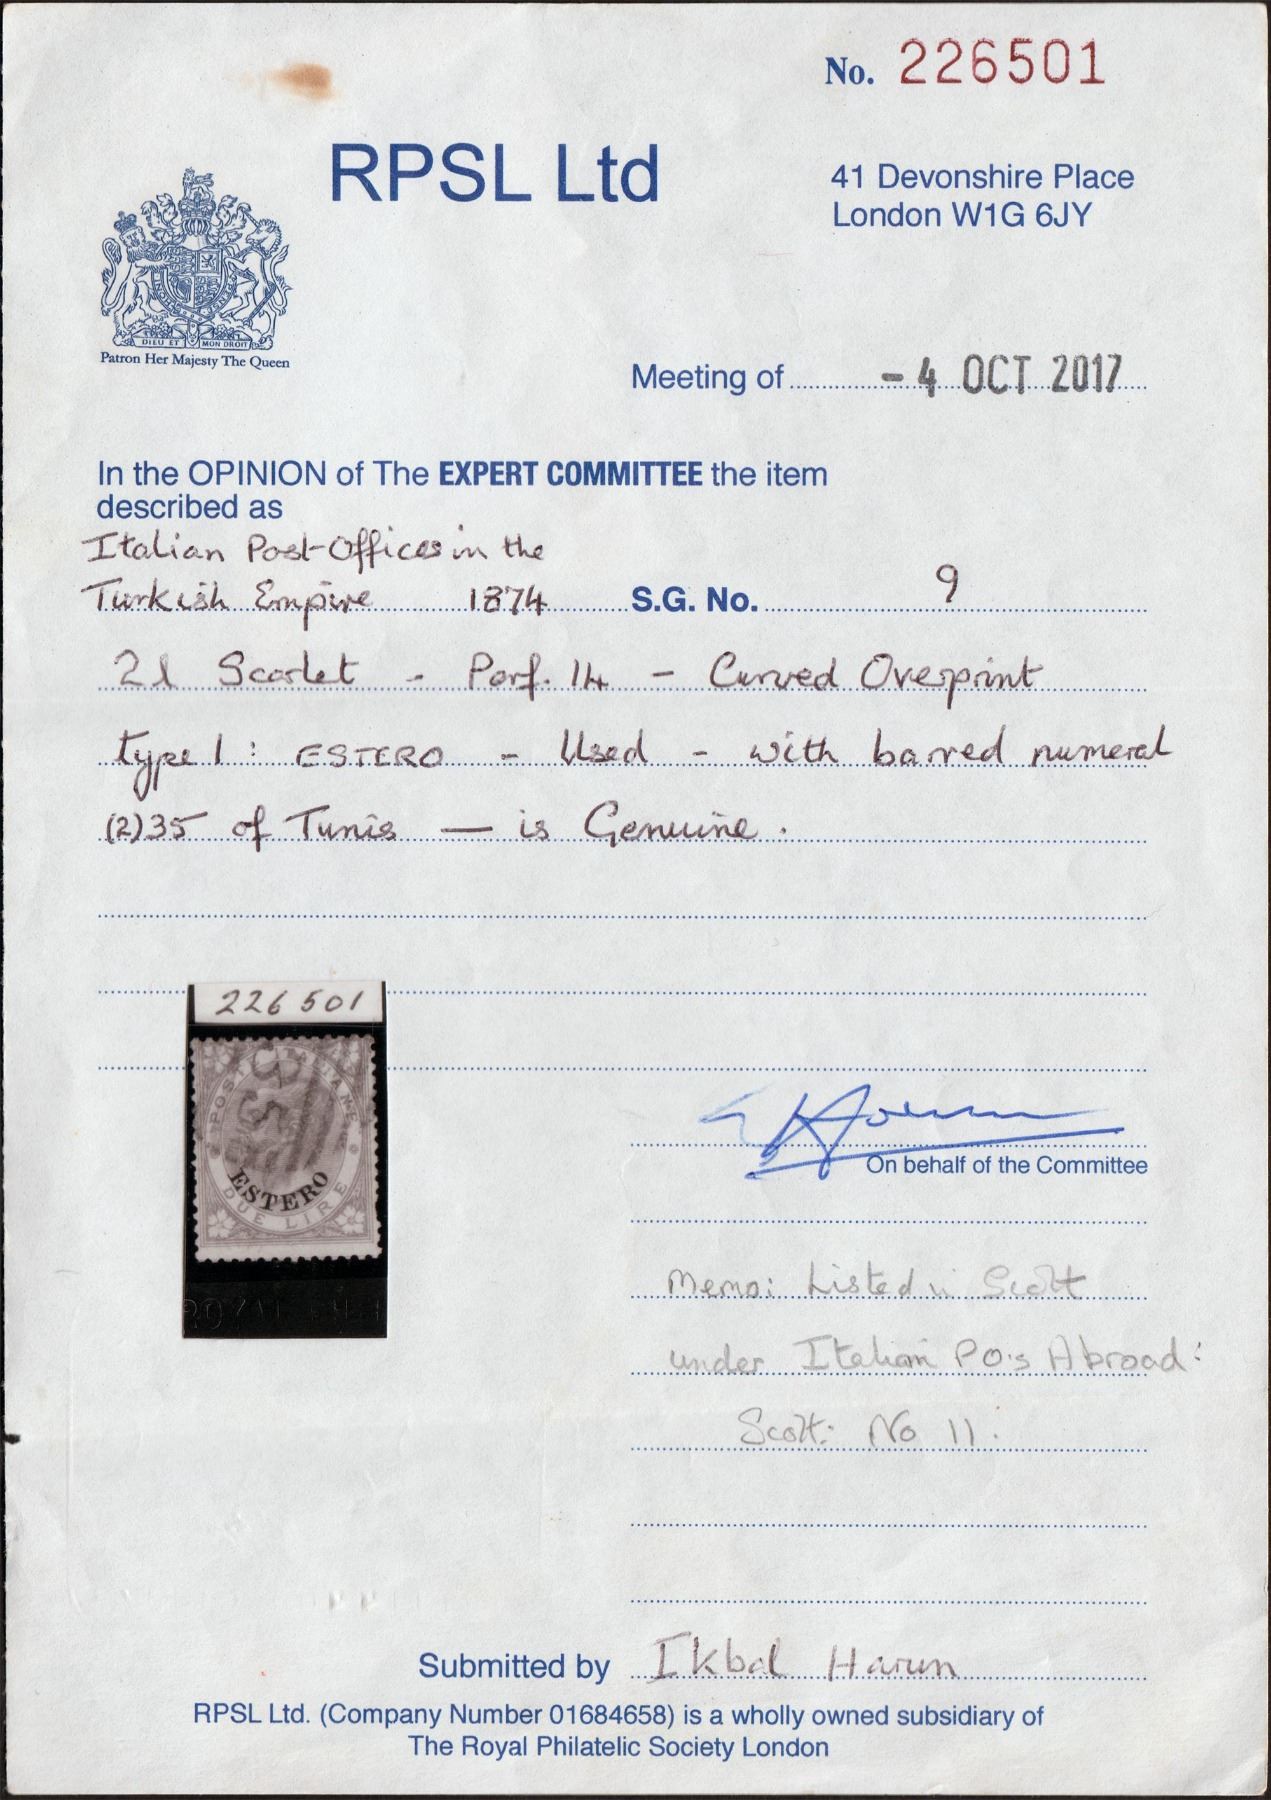 No. 226501
RPSL Ltd
41 Devonshire Place
London W1G 6JY
DIEU ET MON DROIT
Patron Her Majesty The Queen
Meeting of - 4 OCT 2017
In the OPINION of The EXPERT COMMITTEE the item
described as
Italian Post-Offices in the
Turkish Empire 1874 S.G. No. 9
2l Scarlet - Perf. 14 - Curved Overprint
type 1: ESTERO - Used - with barred numeral
(2)35 of Tunis — is Genuine.
226501
ESTERO
DUE LIRE
On behalf of the Committee
Memo: Listed in Scott
under Italian PO's Abroad:
Scott: No 11.
Submitted by Ikbal Harun
RPSL Ltd. (Company Number 01684658) is a wholly owned subsidiary of
The Royal Philatelic Society London